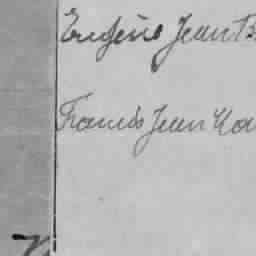 Eugène Jean B
Francis Jean